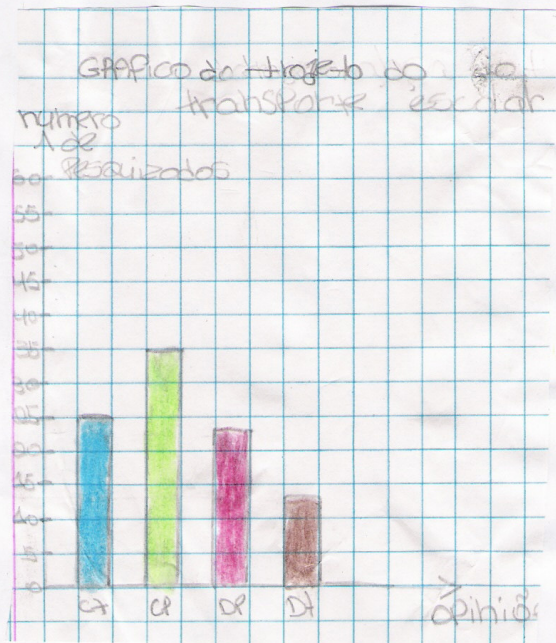 GRAfico do trajeto do
transporte escolar
numero
1 de
Pesquizados
60
55
50
45
40
35
30
25
20
15
10
5
0
CT CP DP DT opiniõ